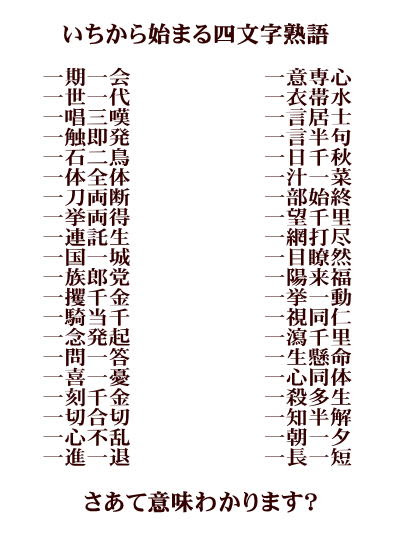 いちから始まる四文字熟語
一期一会
一世一代
一唱三嘆
一触即発
一石二鳥
一体全体
一刀両断
一挙両得
一連託生
一国一城
一族郎党
一攫千金
一騎当千
一念発起
一問一答
一喜一憂
一刻千金
一切合切
一心不乱
一進一退
一意専心
一衣帯水
一言居士
一言半句
一日千秋
一汁一菜
一部始終
一望千里
一網打尽
一目瞭然
一陽来福
一挙一動
一視同仁
一瀉千里
一生懸命
一心同体
一殺多生
一知半解
一朝一夕
一長一短
さあて意味わかります？